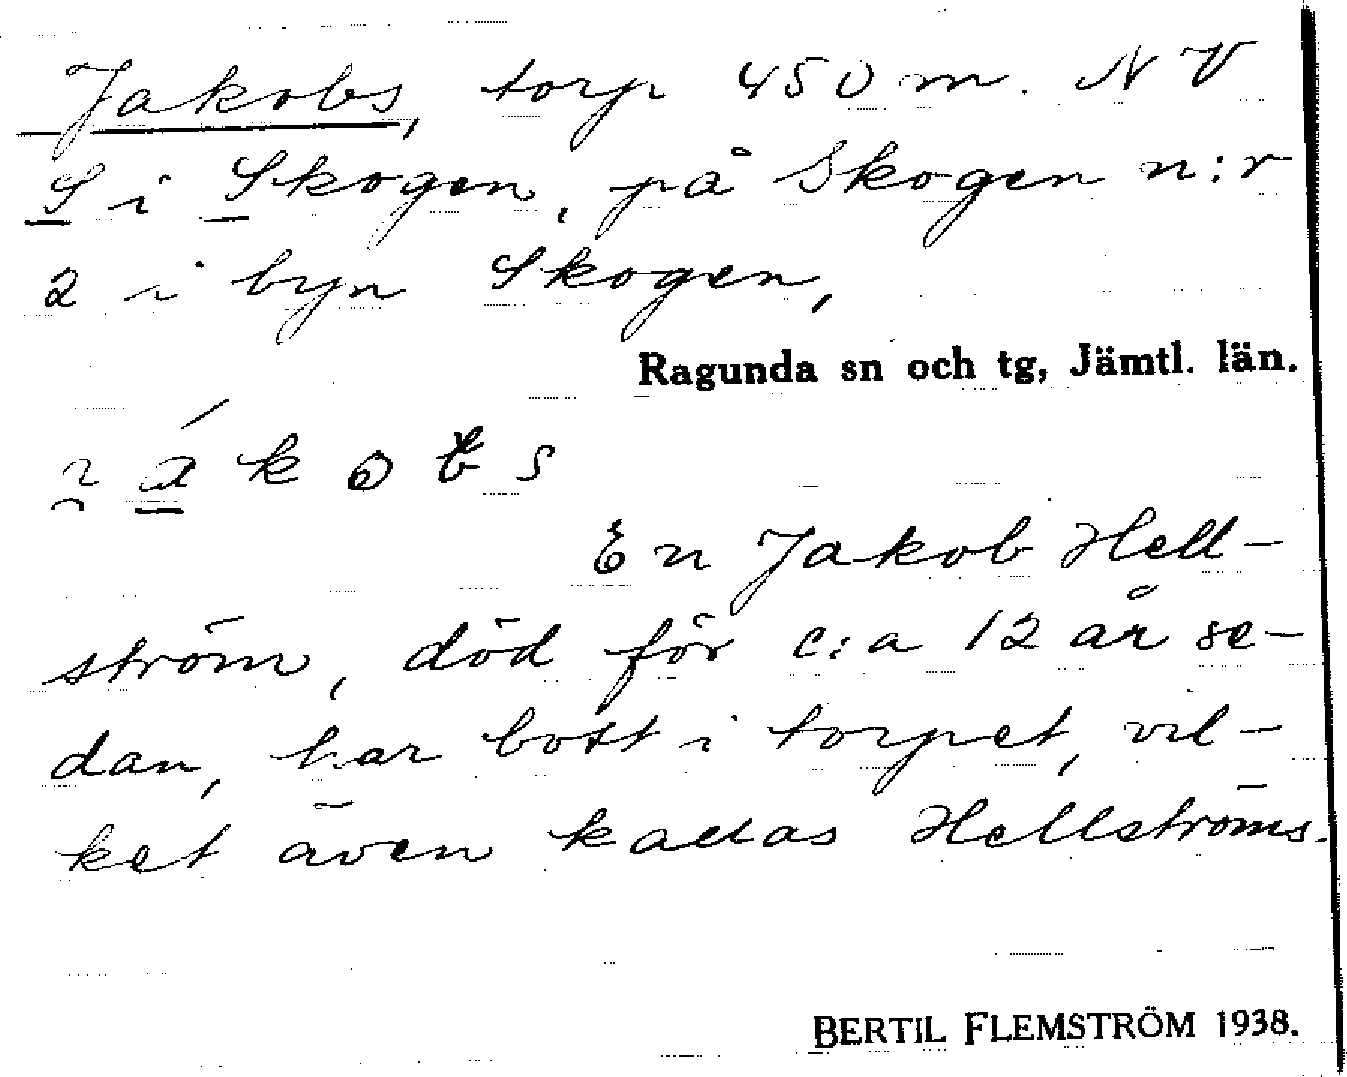 Jakobs, torp 450 m. NV
S i Skogen, på Skogen n:r
2 i byn Skogen,
Ragunda sn och tg, Jämtl. län.
En Jakob Hell-
ström, död för c:a 12 år se-
dan, har bott i torpet, vil-
ket även kallas Hellströms.
BERTIL FLEMSTRÖM 1938.